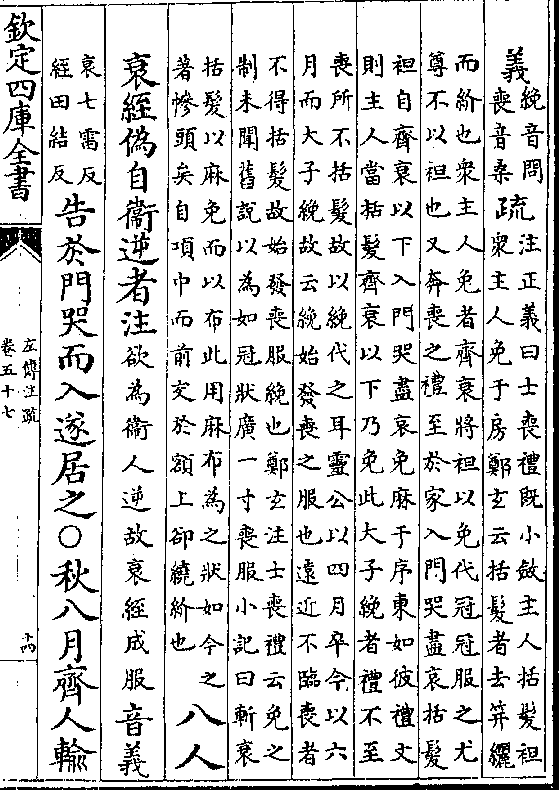 義
絻音問
喪音桑
疏
注正義曰士喪禮既小斂主人括髮袒
衆主人免于房鄭玄云括髮者去笄纚
而紒也衆主人免者齊衰將袒以免代冠冠服之尤
尊不以袒也又奔喪之禮至於家入門哭盡哀括髮
袒自齊衰以下入門哭盡哀免麻于序東如彼禮文
則主人當括髮齊衰以下乃免此大子絻者禮不至
喪所不括髮故以絻代之耳靈公以四月卒今以六
月而大子絻故云絻始發喪之服也遠近不臨喪者
不得括髮故始發喪服絻也鄭玄注士喪禮云免之
制未聞舊說以為如冠狀廣一寸喪服小記曰斬衰
括髮以麻免而以布此用麻布為之狀如今之
著幓頭矣自項中而前交於額上卻繞紒也
八人
衰絰偽自衞逆者注欲為衞人逆故衰絰成服音義
衰七雷反
絰田結反
告於門哭而入遂居之○秋八月齊人輸
欽定四庫全書
左傳注疏
卷五十七
十四